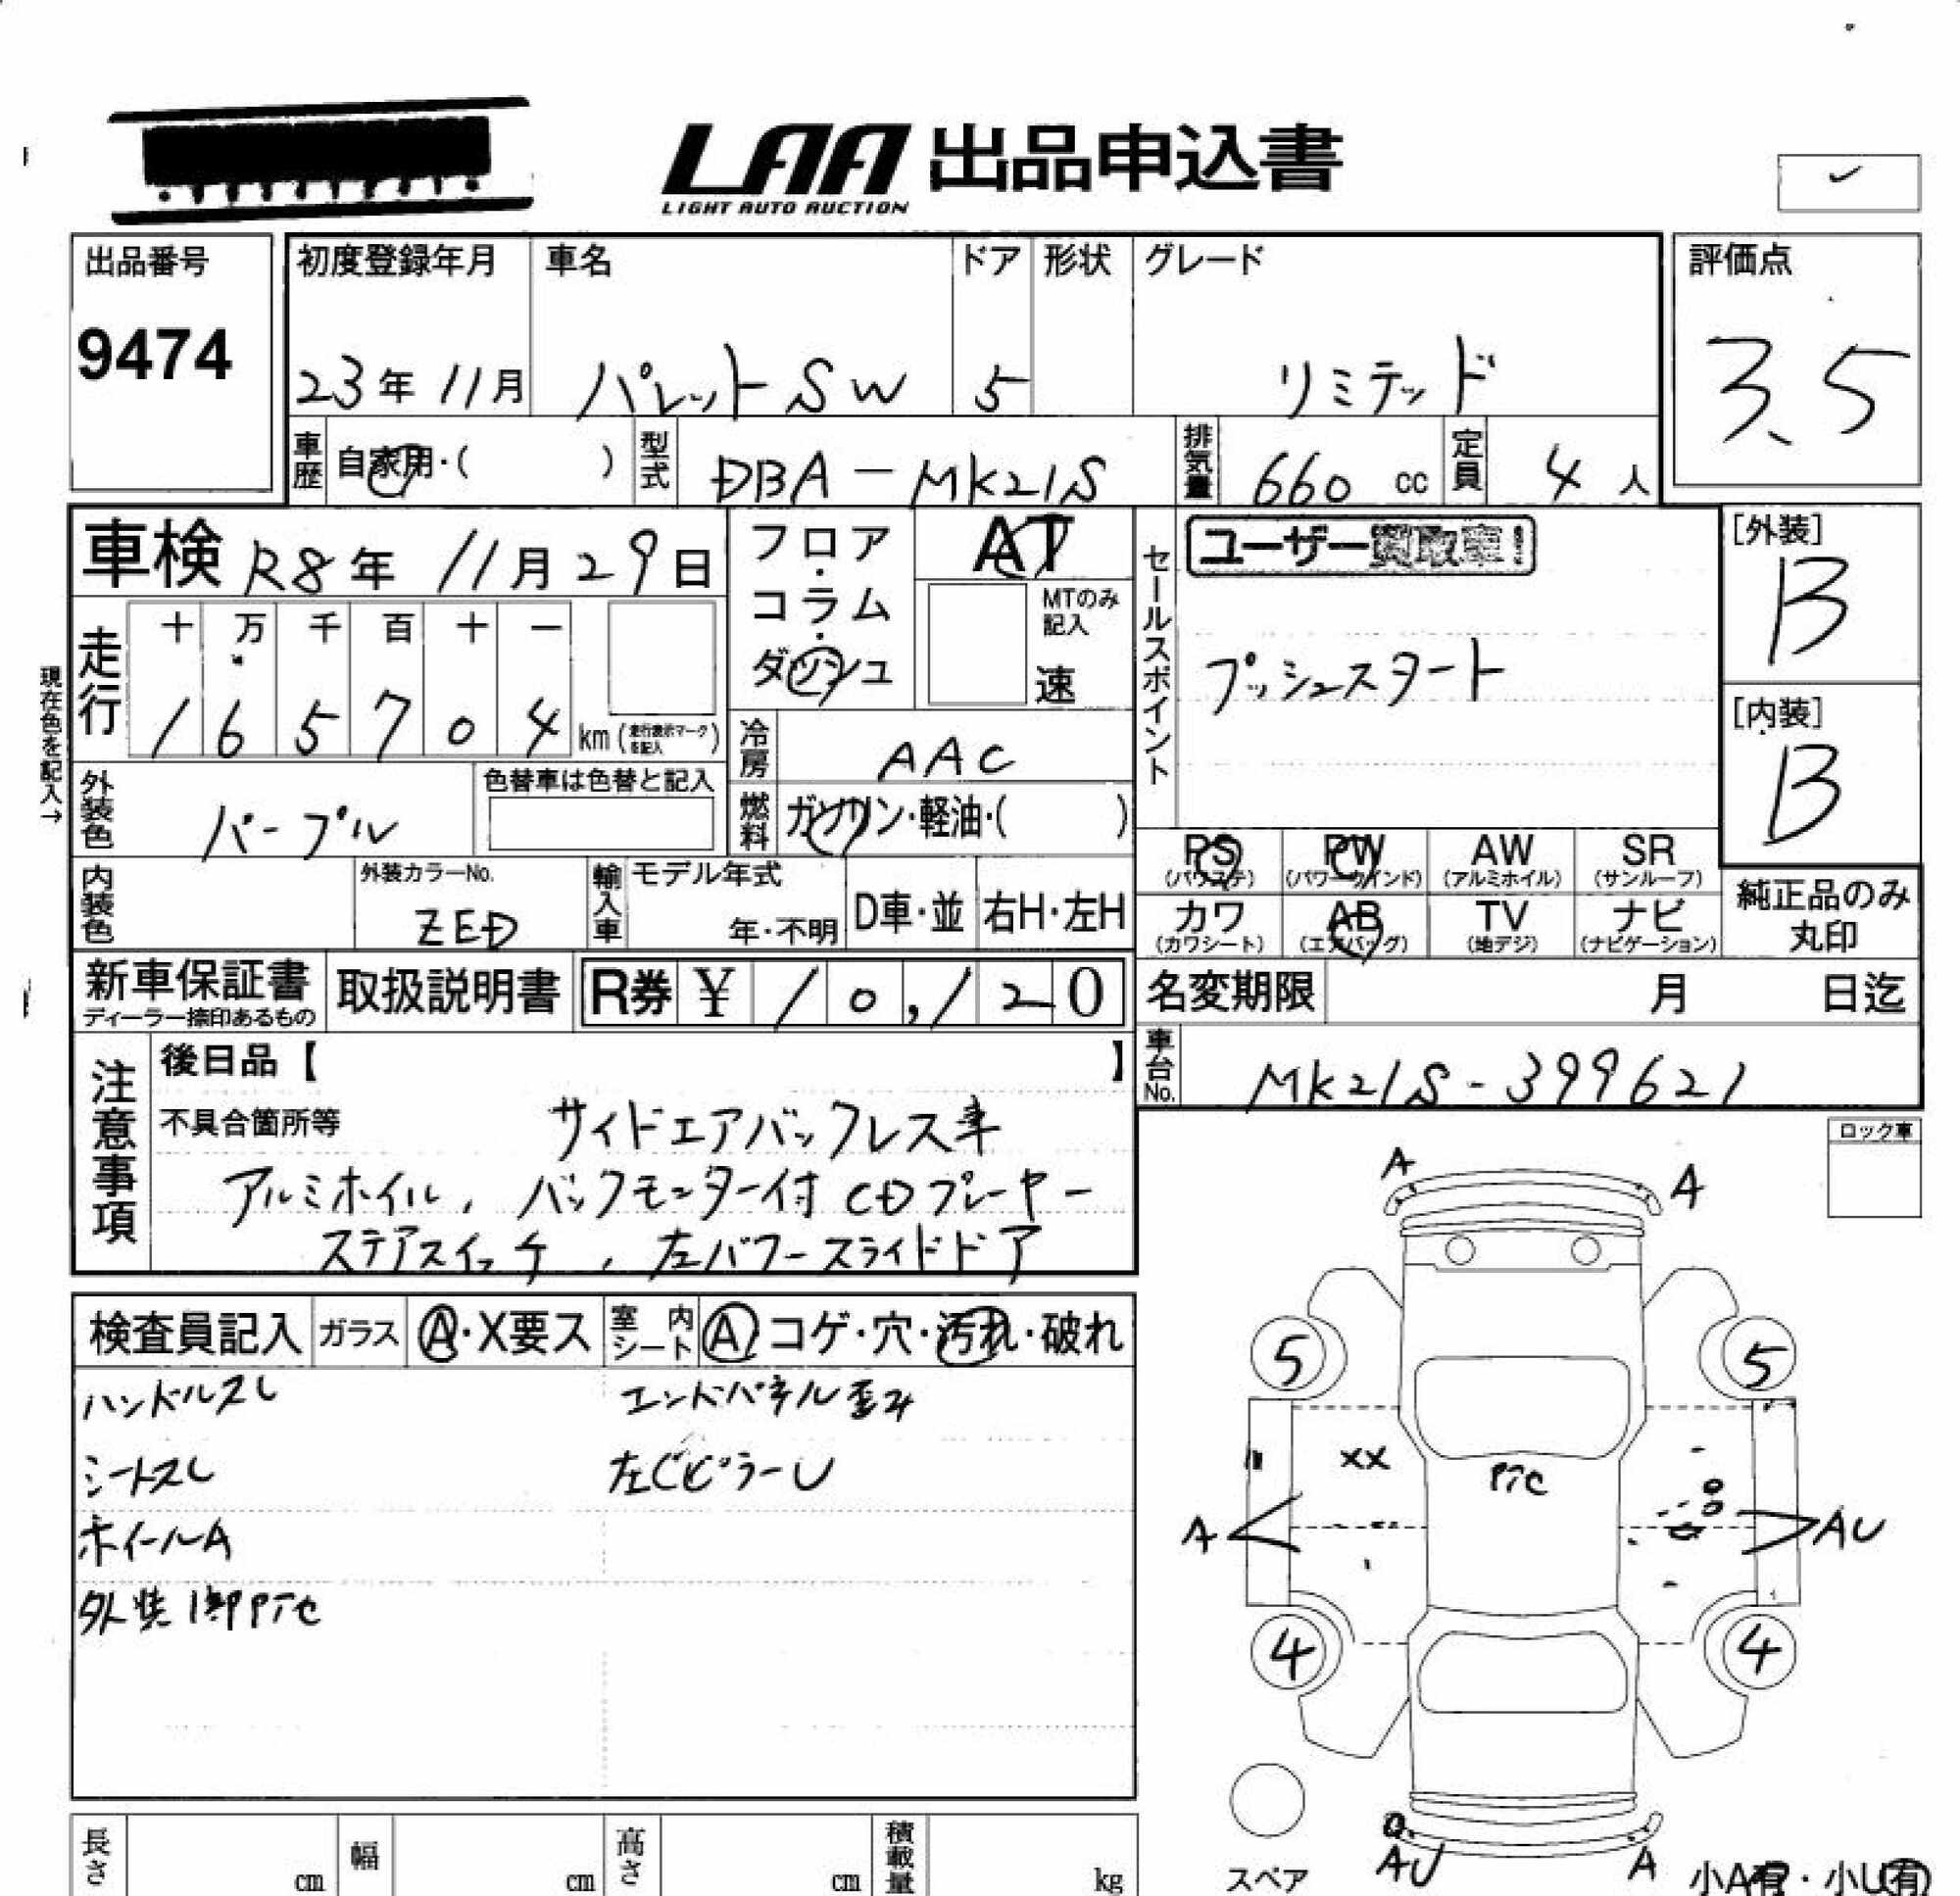 LAA 出品申込書
LIGHT AUTO AUCTION
出品番号
9474
初度登録年月
23年11月
車名
パレットSW
ドア
5
形状
グレード
リミテッド
評価点
3.5
車歴 自家用・( )
型式 DBA-MK21S
排気量 660 cc
定員 4 人
車検 R8年 11月29日
現在色を記入→
走行
十 万 千 百 十 一
1 6 5 7 0 4 km (走行表示マークを記入)
フロア・コラム・ダッシュ
AT
MTのみ記入
速
冷房 AAC
燃料 ガソリン・軽油・( )
セールスポイント
ユーザー買取車!
プッシュスタート
[外装]
B
[内装]
B
外装色 パープル
色替車は色替と記入
内装色
外装カラーNo.
ZED
輸入車
モデル年式
年・不明
D車・並
右H・左H
PS (パワステ)
PW (パワーウインド)
AW (アルミホイル)
SR (サンルーフ)
カワ (カワシート)
AB (エアバッグ)
TV (地デジ)
ナビ (ナビゲーション)
純正品のみ丸印
新車保証書
ディーラー捺印あるもの
取扱説明書
R券 ¥ 10,120
名変期限 月 日迄
車台No. MK21S-399621
注意事項
後日品【 】
不具合箇所等 サイドエアバックレス車
アルミホイル, バックモニター付CDプレーヤー
ステアスイッチ, 左パワースライドドア
ロック車
検査員記入
ガラス A・X要ス
室内シート A コゲ・穴・汚れ・破れ
ハンドルスレ エンドパネル歪み
シートスレ 左CピラーU
ホイールA
外装1部PTC
A
A
5
5
XX
PTC
A
AU
4
4
AU
A
スペア
小A有・小U有
長さ cm
幅 cm
高さ cm
積載量 kg